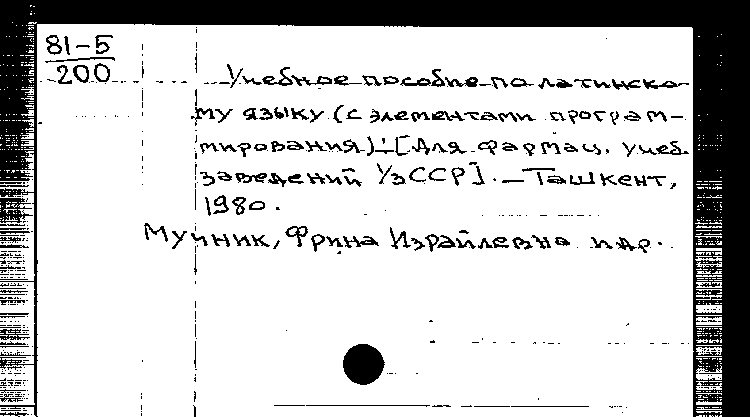 81-5
200
Учебное пособие по латинско-
му языку (с элементами програм-
мирования): [Для фармац. учеб.
заведений УзССР]. - Ташкент,
1980.
Мучник, Фрина Израйлевна и др.